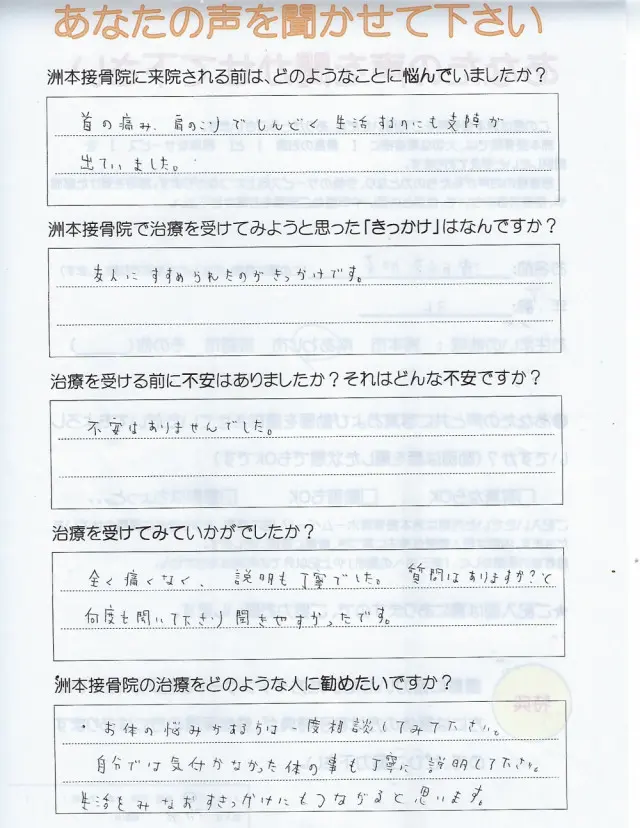 あなたの声を聞かせて下さい
洲本接骨院に来院される前は、どのようなことに悩んでいましたか？
首の痛み、肩のこりでしんどく生活するのにも支障が
出ていました。
洲本接骨院で治療を受けてみようと思った「きっかけ」はなんですか？
友人にすすめられたのがきっかけです。
治療を受ける前に不安はありましたか？それはどんな不安ですか？
不安はありませんでした。
治療を受けてみていかがでしたか？
全く痛くなく、説明も丁寧でした。質問はありますか？と
何度も聞いて下さり聞きやすかったです。
洲本接骨院の治療をどのような人に勧めたいですか？
・お体の悩みがある方は一度相談してみて下さい。
自分では気付かなかった体の事も丁寧に説明して下さい。
生活をみなおすきっかけにもつながると思います。